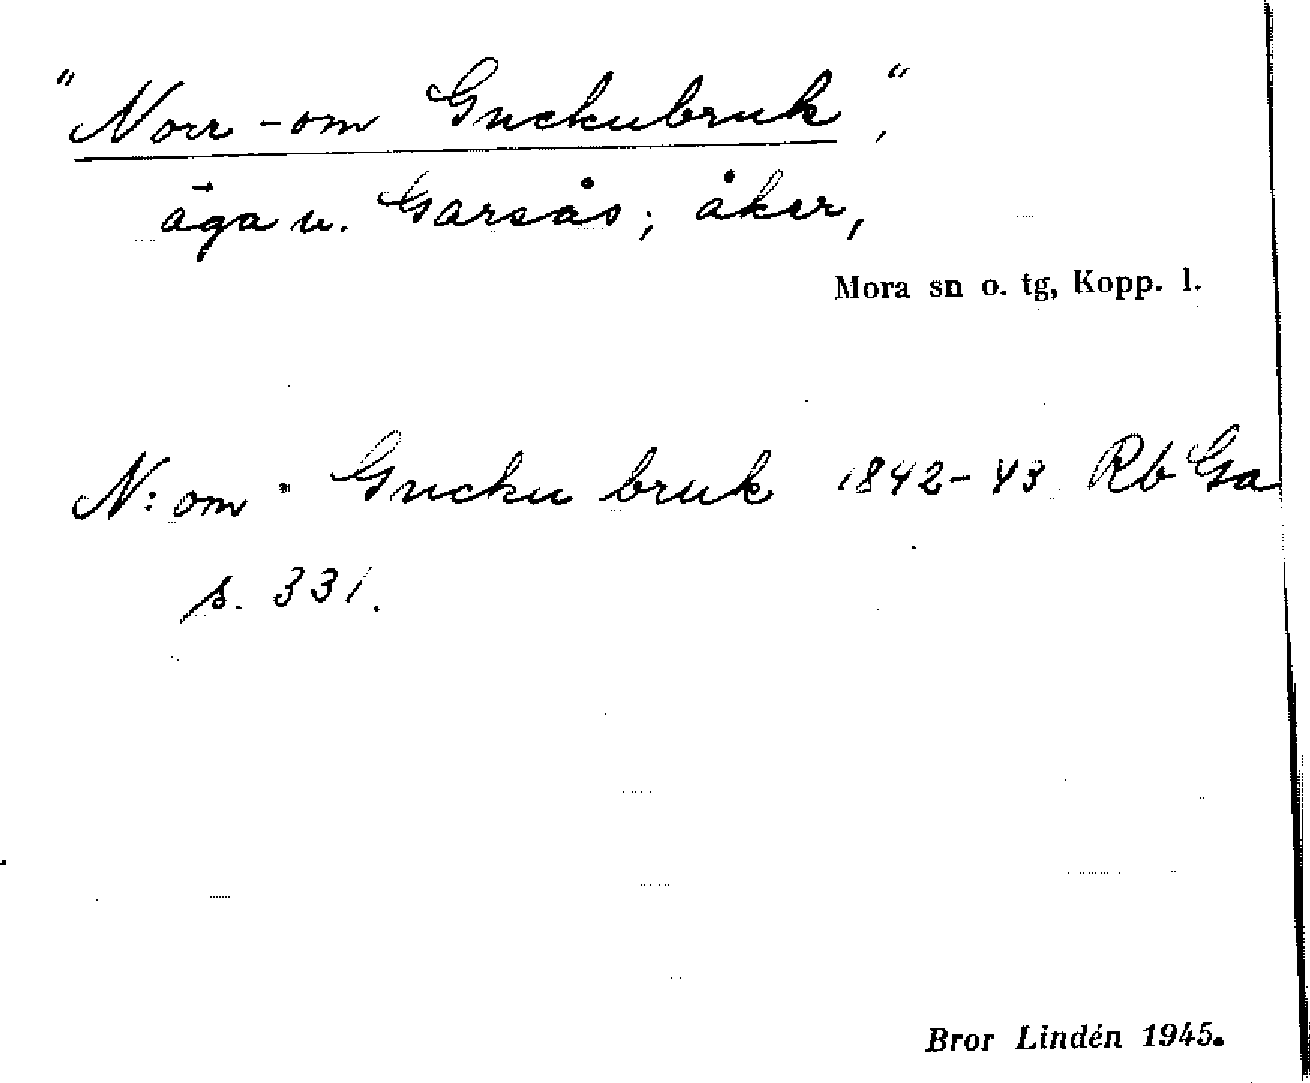 "Norr-om Guckubruk",
äga v. Garsås; åker,
Mora sn o. tg, Kopp. l.
N: om " Gucku bruk 1842-43 Rb Ga
s. 331.
Bror Lindén 1945.